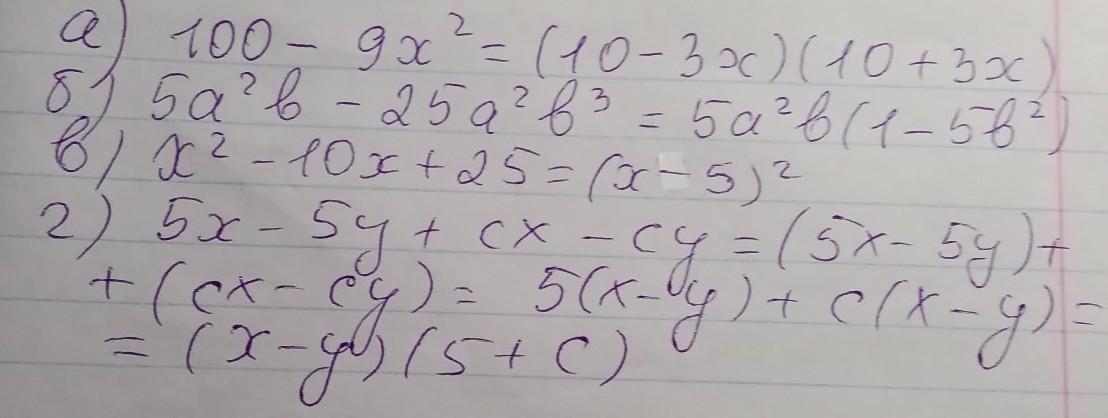 а) 100 - 9x² = (10 - 3x)(10 + 3x)
б) 5a²b - 25a²b³ = 5a²b(1 - 5b²)
в) x² - 10x + 25 = (x - 5)²
г) 5x - 5y + cx - cy = (5x - 5y) +
+ (cx - cy) = 5(x - y) + c(x - y) =
= (x - y)(5 + c)